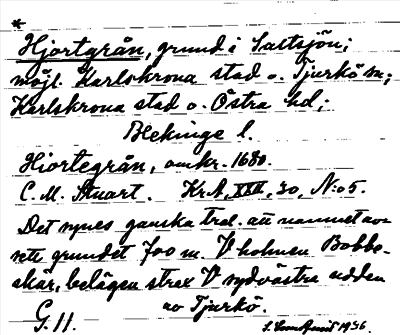 *
Hjortgrån, grund i Saltsjön;
möjl. Karlskrona stad o. Tjurkö sn;
Karlskrona stad o. Östra hd;
Blekinge l.
Hiortegrån, omkr. 1680.
C. M. Stuart. Kr.A., XXII, 30, N:o 5.
Det synes ganska trol. att namnet av-
sett grundet 700 m. V holmen Bobbe-
skär, belägen strax V sydvästra udden
av Tjurkö.
G. 11. 1936.